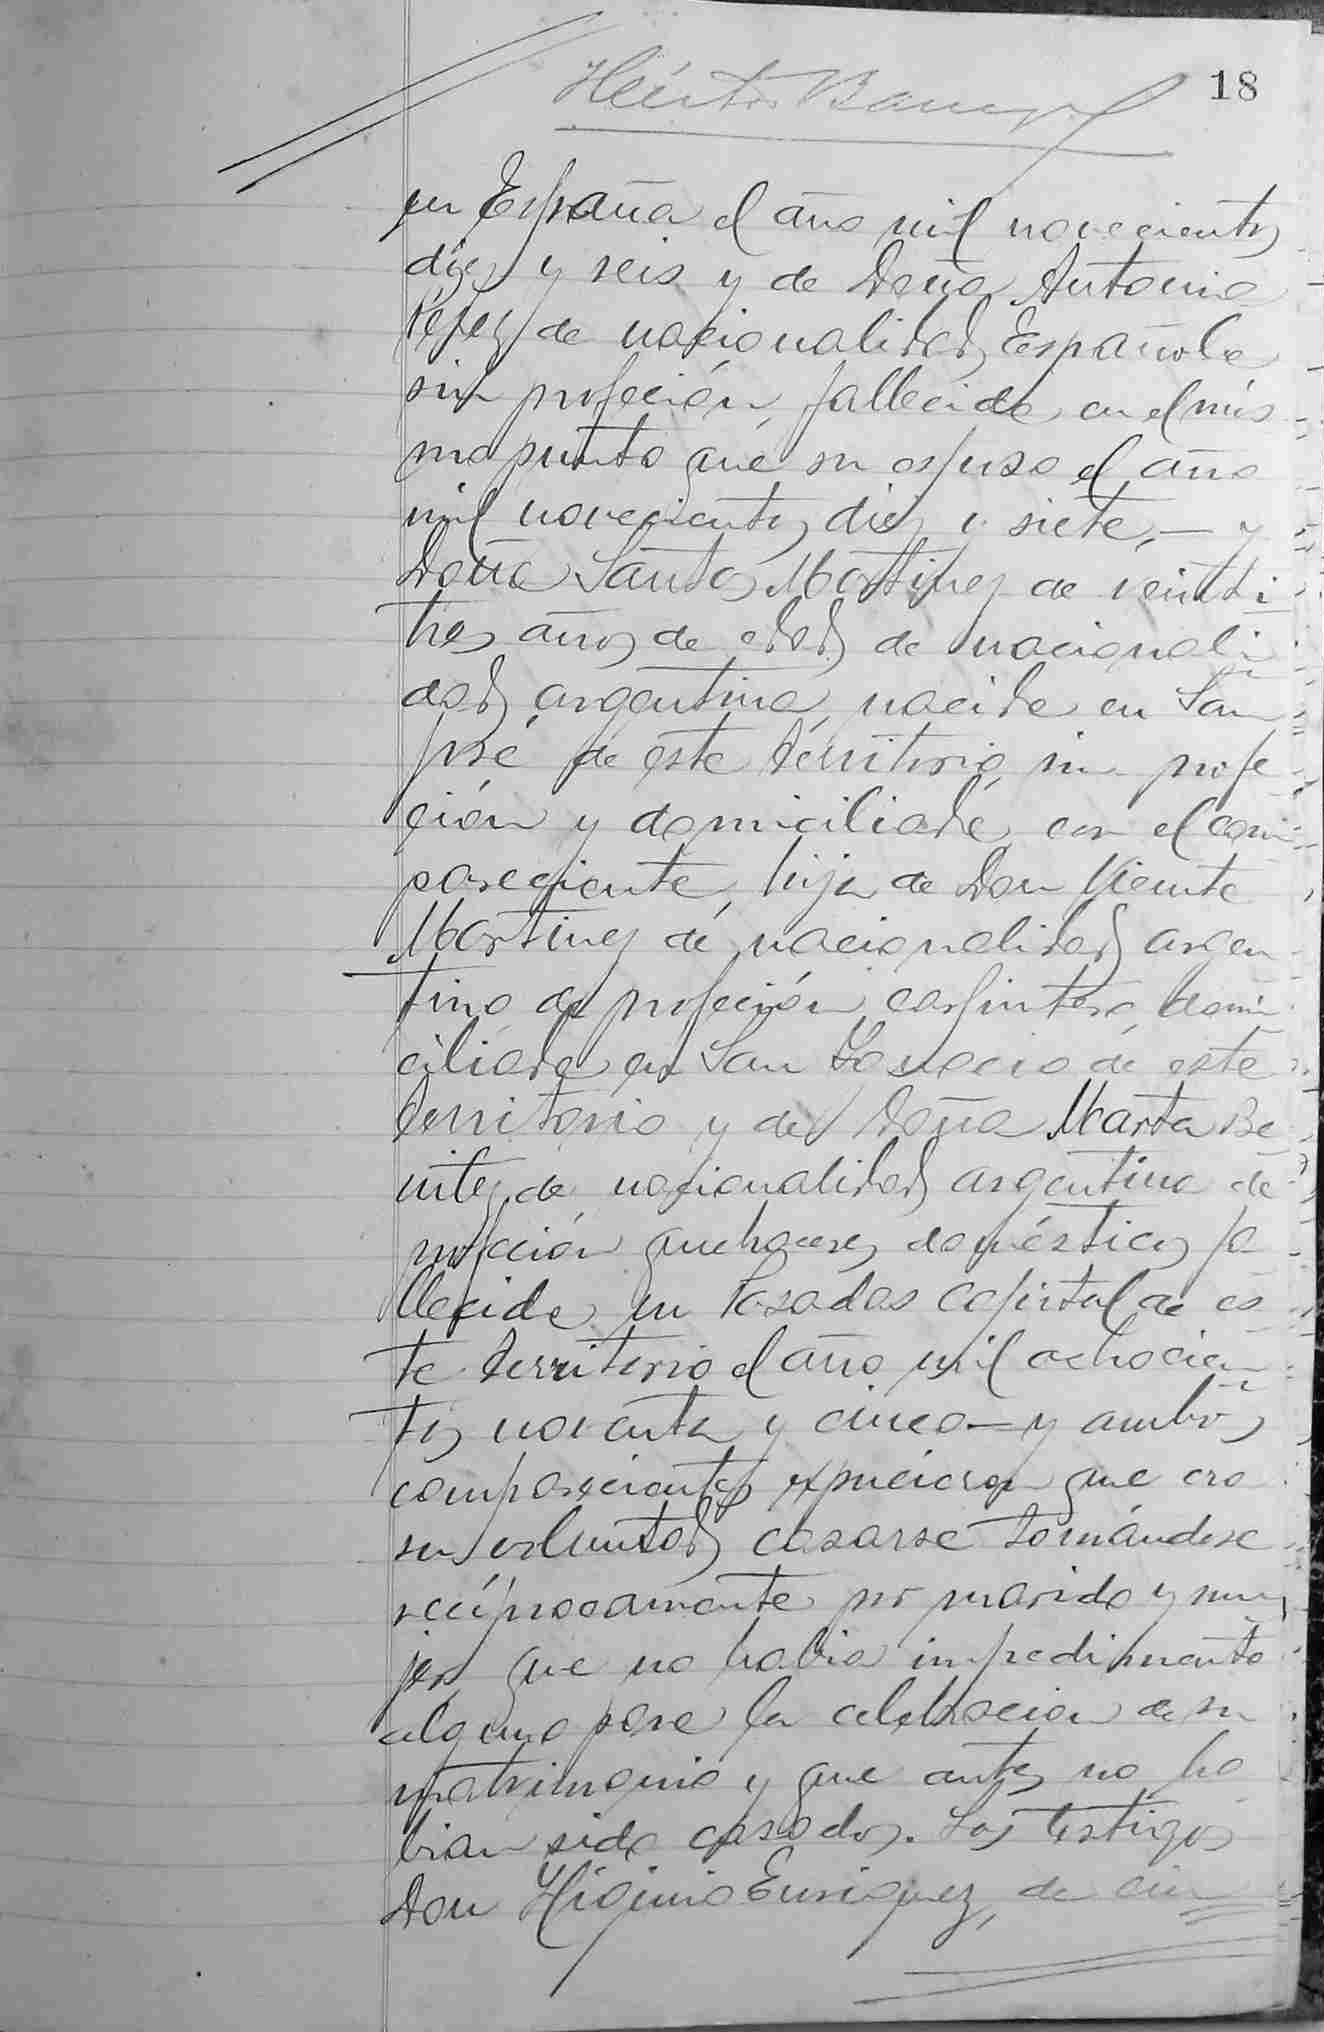 18
Héctor
en España el año mil novecientos
diez y seis y de Doña Antonia
Pérez de nacionalidad Española
sin profeción, fallecida en el mis
mo punto que su esposo el año
mil novecientos diez y siete,— y
Doña Santos Martinez de veinti
tres años de edad de nacionali
dad argentina, nacida en San
José de este territorio, sin profe
ción y domiciliada con el com
pareciente, hija de Don Vicente
Martinez de nacionalidad argen
tino de profeción carpintero domi
ciliado en San Ignacio de este
territorio y de Doña Marta Be
nitez de nacionalidad argentina de
profeción quehaceres domésticos fa
llecida en Posadas capital de es
te territorio el año mil ochocien
tos noventa y cinco— y ambos
comparecientes expucieron que era
su voluntad casarse tomándose
recíprocamente por marido y mu
jer, que no habia impedimento
alguno para la celebracion de su
matrimonio y que antes no ha
bian sido casados. Los testigos
Don Higinio Enriquez, de cin